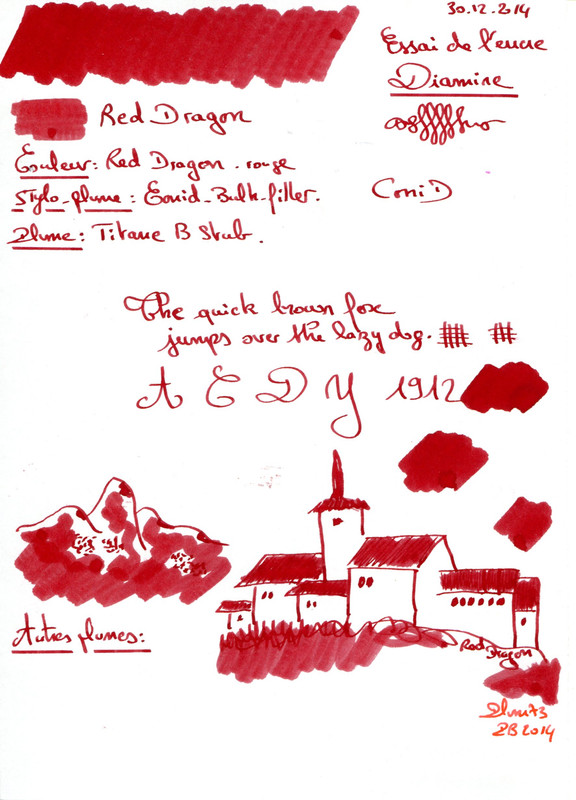 30.12.2014
Essai de l'encre
Diamine
Red Dragon
Couleur: Red Dragon - rouge
Stylo-plume: Conid-Bulk-filler.
ConiD
Plume: Titane B Stub.
The quick brown fox
jumps over the lazy dog.
A E D Y 1912
Autres plumes:
Red Dragon
Plum73
PB 2014